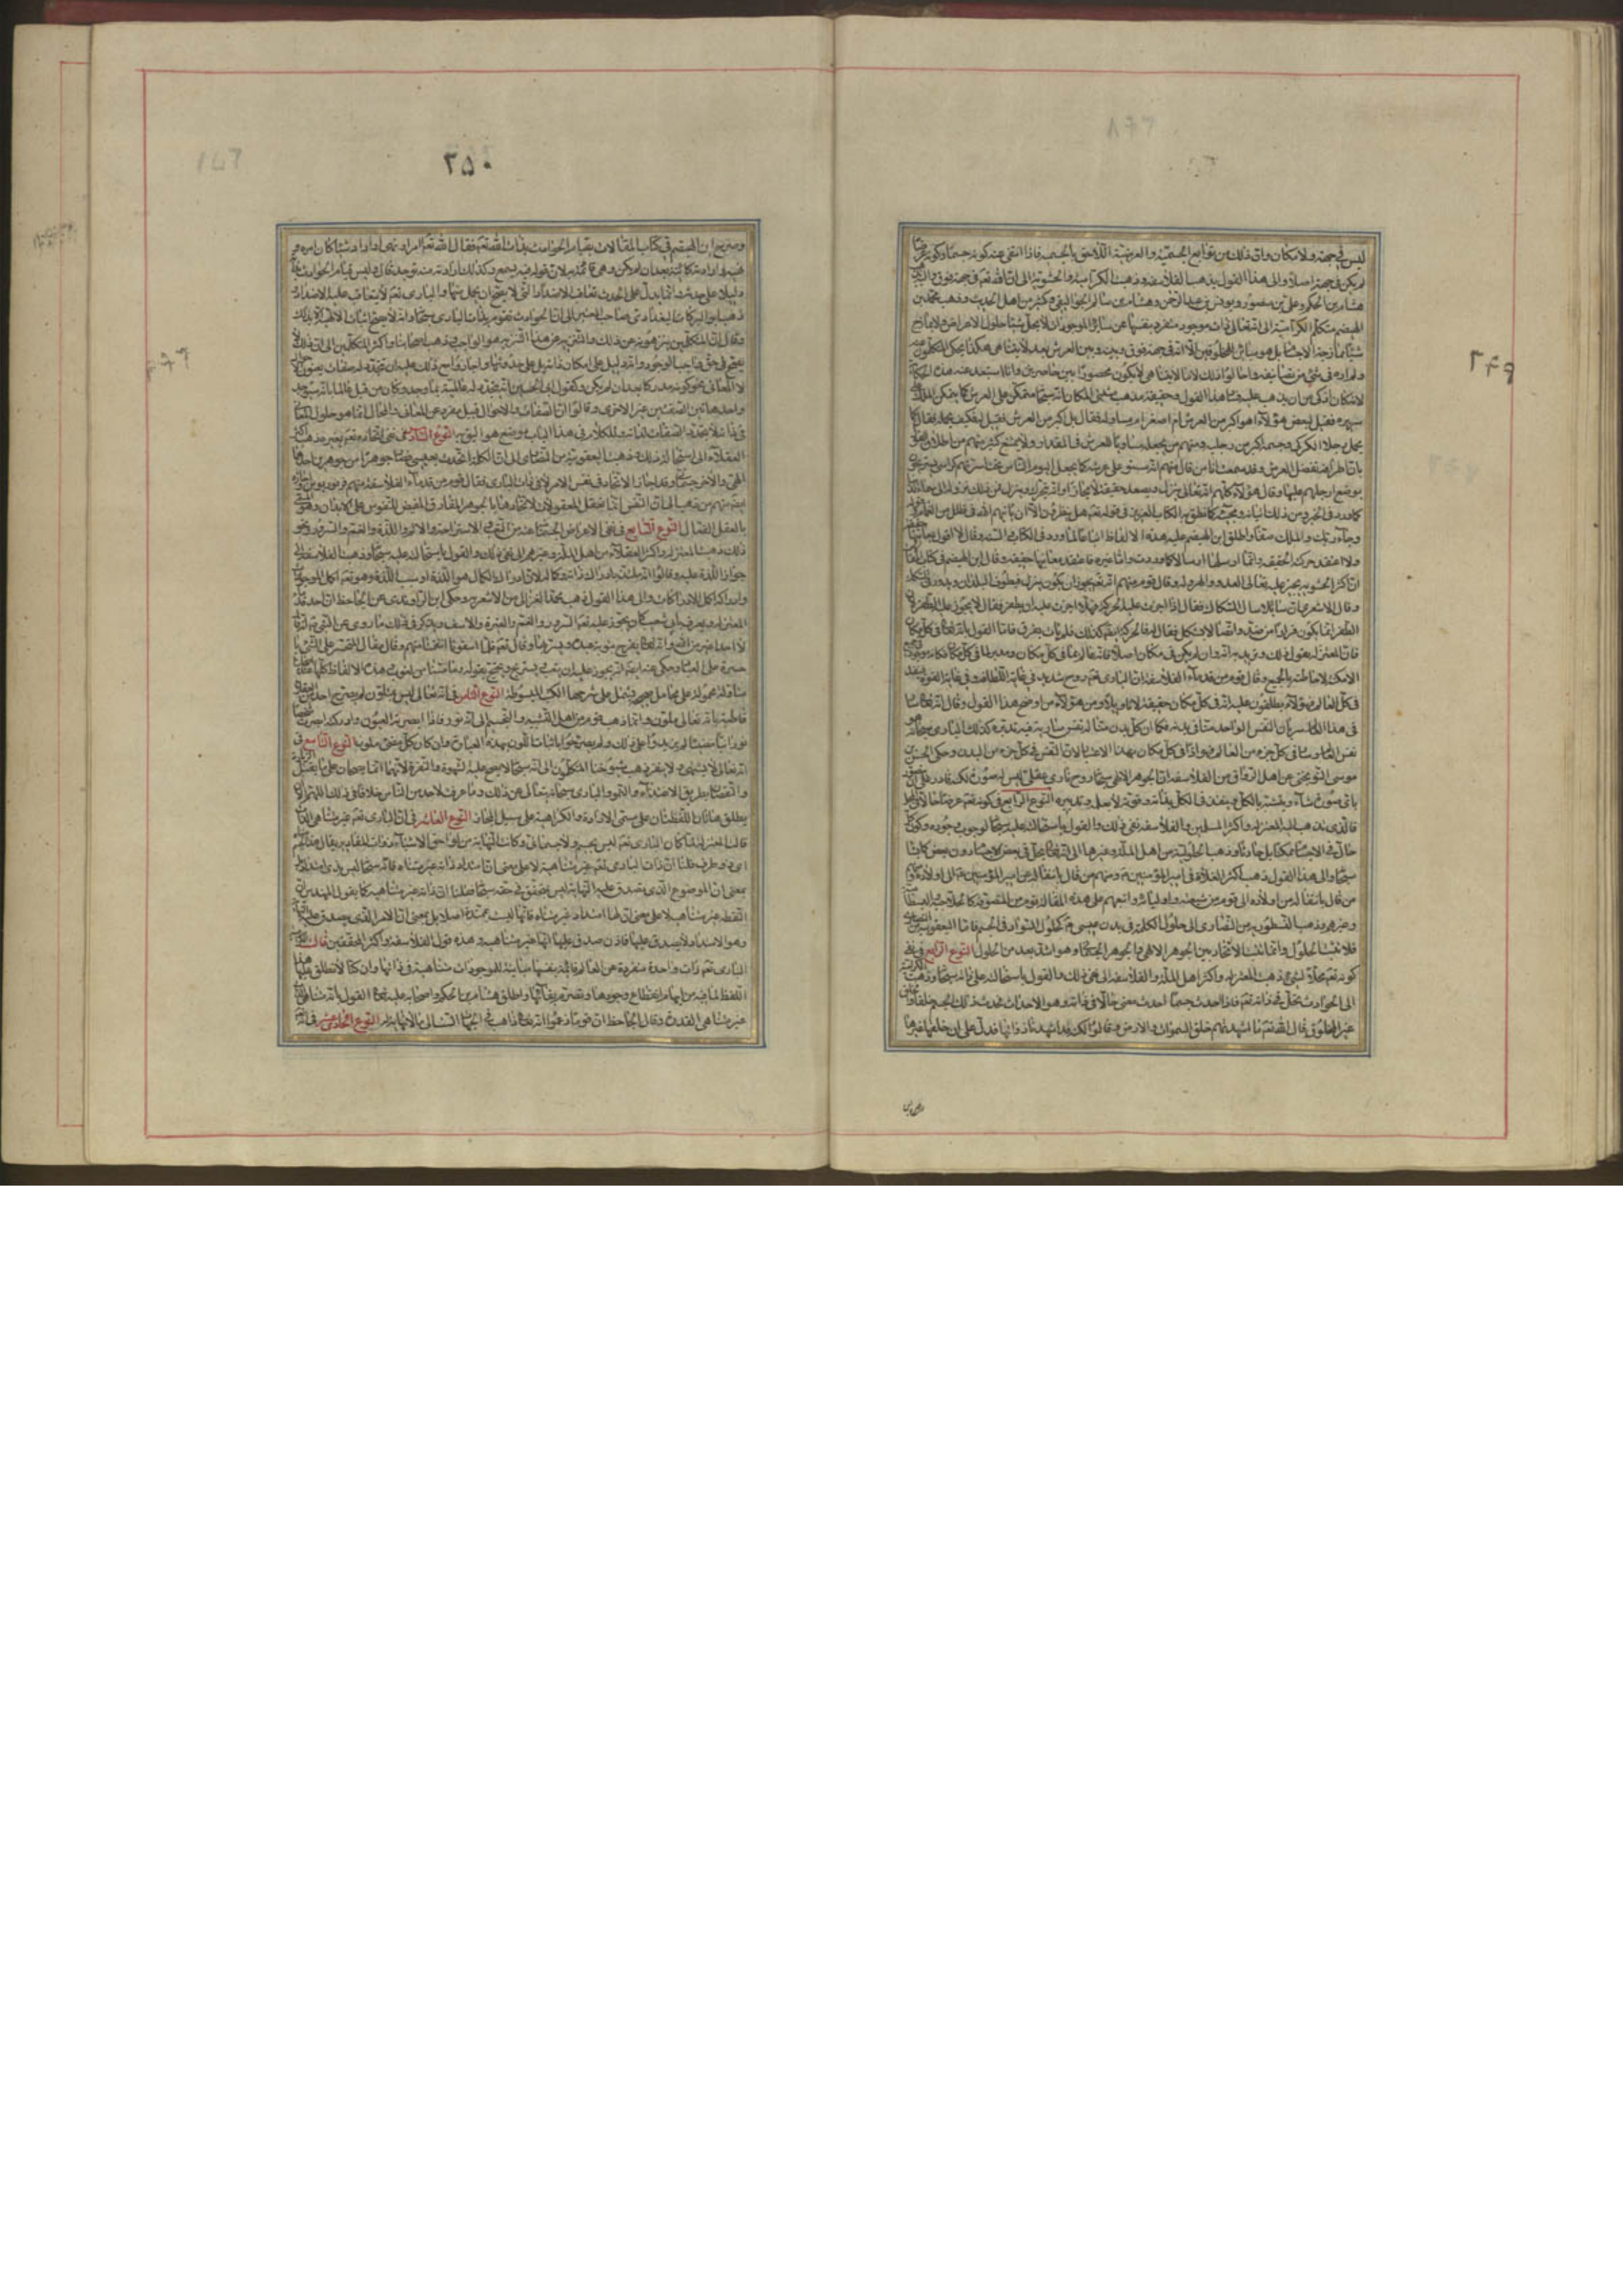 ٢٤٩
ليس في جهة ولا مكان وان ذلك من توابع الجسمية والعرضية اللاحق بالجسمية فاذا انتفى عنه كونه جسما وكونه عرضا
لم يكن في جهة اصلا والى هذا القول يذهب الفلاسفة وذهبت الكرامية والحشوية الى ان الله تعم في جهة فوق واليه ذهب
هشام بن الحكم وعلي بن منصور ويونس بن عبد الرحمن وهشام بن سالم الجواليقي وكثير من اهل الحديث وذهب محمد بن
الهيصم متكلم الكرامية الى انه تعالى ذات موجودة منفردة بنفسها عن سائر الموجودات لا يحل شيئا حلول الاعراض ولا يمازج
شيئا ممازجة الاجسام بل هو مباين للمخلوقين الا انه في جهة فوق وبينه وبين العرش بعد لا يتناهى هكذا يحكى المتكلمون عنه
ولم اره في شيء من تصانيفه واحالوا ذلك لان ما لا يتناهى لا يكون محصورا بين حاصرين وانا استبعد عنه هذه الحكاية
لانه كان اذكى من ان يذهب عليه فساد هذا القول وحقيقة مذهب مثبتي المكان انه سبحانه متمكن على العرش كما يتمكن الملك على
سريره فقيل لبعض هؤلاء اهو اكبر من العرش ام اصغر ام مساو له فقال بل اكبر من العرش فقيل له فكيف يحمله فقال كما
يحمل رجلا الكركي وجسمه اكبر من رجليه ومنهم من يجعله مساويا للعرش في المقدار ولا يمتنع كثير منهم من اطلاق القول
بان اطرافه تفضل عن العرش وقد سمعت انا من قال منهم انه مستو على عرشه كما يجلس
يوضع ارجلهم عليها وقال هؤلاء كلهم انه تعالى ينزل ويصعد حقيقة لا مجازا وانه يتحرك وينزل فمن ذلك نزوله الى السماء الدنيا
كما ورد في الخبر ومن ذلك اتيانه ومجيئه كما نطق به الكتاب العزيز في قوله تعم هل ينظرون الا ان ياتيهم الله في ظلل من الغمام وقوله
وجاء ربك والملك صفا واطلق ابن الهيصم عليه هذه الالفاظ اتباعا لما ورد في الكتاب والسنة وقال لا اقول بمعانيها
ولا اعتقد حركته الحقيقية وانما ارسلها ارسالا كما وردت واما غيره فاعتقد معانيها حقيقة وقال ابن الهيصم في كتاب المقالات
ان اكثر الحشوية يجيز عليه تعالى العدو والهرولة وقال قوم منهم انه تعم يجوز ان ينزل فيطوف البلدان ويدور في السكك
وقال الاشعري
الظفر انما يكون فرارا من ضد واتصالا بشكل فقال له فالحركة ايضا كذلك فلم يات بفرق فاما القول بانه تعم في كل مكان
فان المعتزلة يقولون ذلك وتريد به انه وان لم يكن في مكان اصلا فانه عالم بما في كل مكان ومدبر لما في كل مكان فكانه موجود في جميع
الامكنة لاحاطته بالجميع وقال قوم من قدماء الفلاسفة ان الباري تعم روح شديد في غاية اللطافة وفي غاية القوة ينفذ
في كل العالم وهؤلاء يطلقون عليه انه في كل مكان حقيقة لا تاويلا ومن هؤلاء من اوضح هذا القول وقال انه تعم سار
في هذا العالم سريان نفس الواحد منا في بدنه فكما ان كل بدن منا له نفس سارية فيه تدبره كذلك الباري سبحانه هو
نفس العالم وسار في كل جزء من العالم فهو اذا في كل مكان بهذا الاعتبار لان النفس في كل جزء من البدن وحكى الحسن بن
موسى النوبختي عن اهل الرواق من الفلاسفة ان الجوهر الالهي سبحانه روح ناري عقلي ليس له صورة لكنه قادر على ان يتصور
باي صورة شاء ويتشبه بالكل وينفذ في الكل بذاته وقوته لا بعلمه وتدبيره النوع الرابع في كونه تعم
فالذي يذهب اليه المعتزلة واكثر المسلمين والفلاسفة نفي ذلك والقول باستحالته عليه سبحانه لوجوب وجوده وكون كل
حال في الاجسام ممكنا بل حادثا وذهبت الحلولية من اهل الملة وغيرها الى انه تعم يحل في بعض الاجسام دون بعض كما يشاء
سبحانه والى هذا القول ذهب اكثر الغلاة في امير المؤمنين ومنهم من قال بانتقاله من امير المؤمنين الى اولاده ومنهم
من قال بانتقاله من اولاده الى قوم من شيعته واوليائه واتبعهم على هذه المقالة قوم من المتصوفة كالحلاجية والبسطامية
وغيرهم وذهبت النسطورية من النصارى الى حلول الكلمة في بدن عيسى كحلول السواد في الجسم فاما اليعقوبية من النصارى
فلا تثبت الحلول وانما تثبت الاتحاد بين الجوهر الالهي والجوهر الجسماني وهو اشد بعدا من الحلول النوع الخامس في نفي
كونه تعم محلا لشيء ذهبت المعتزلة واكثر اهل الملة والفلاسفة الى نفي ذلك والقول باستحالته على ذاته سبحانه وذهبت الكرامية
الى ان الحوادث تحل في ذاته تعم فاذا احدث جسما احدث معنى حالا في ذاته وهو الاحداث فحدث ذلك الجسم
غير المخلوق قال الله تعم ما اشهدتهم خلق السموات والارض وقالوا لكنه قد اشهدنا ذواتها فدل على ان خلقها غيرها
وصرح
٢٥٠
وصرح ابن الهيصم في كتاب المقالات بقيام الحوادث بذات الله تعم فقال انه تعم اذا امر او نهى او اراد شيئا كان امره و
نهيه وارادته كائنة بعد ان لم تكن وهي قائمة به لان قوله منه يسمع وكذلك ارادته منه توجد قال وليس قيام الحوادث بذاته
دليلا على حدوثه وانما يدل على الحدوث تعاقب الاضداد التي لا يصح ان يخلو منها والباري تعم لا يتعاقب عليه الاضداد
ذهب ابو البركات البغدادي صاحب المعتبر الى ان الحوادث تقوم بذات الباري سبحانه وانه لا يصح اثبات الالهية الا بذلك
وقال ان المتكلمين ينزهونه عن ذلك والتنزيه عن هذا التنزيه هو الواجب وذهب اصحابنا واكثر المتكلمين الى ان ذلك لا
يصح في حق واجب الوجود وانه دليل على امكان ذاته بل على حدوثها واجازوا مع ذلك عليه ان يتجدد له صفات يعنون الاحوال
لا المعاني نحو كونه مدركا بعد ان لم يكن وكقول ابي الحسين انه يتجدد له عالمية بما وجد وكان من قبل عالما بانه سيوجد
واحدى هاتين الصفتين غير الاخرى وقالوا ان الصفات والاحوال قيل مفرد عن المعاني والمحال انما هو حلول المعاني
في ذاته لا تجدد الصفات لذاته وللكلام في هذا الباب موضع هو اليق به النوع السادس في نفي اتحاده تعم بغيره ذهب اكثر
العقلاء الى استحالة ذلك وذهبت اليعقوبية من النصارى الى ان الكلمة اتحدت بعيسى فصارت جوهرا من جوهرين احدهما
الهي والاخر جسماني وقد اجاز الاتحاد في نفس الامر لا في ذات الباري تعم قوم من قدماء الفلاسفة منهم فرفوريوس واجازه
ايضا منهم من ذهب الى ان النفس انما تعقل المعقولات لاتحادها بالجوهر المفارق المفيض للنفوس على الابدان وهو المسمى
بالعقل الفعال النوع السابع في نفي الاعراض الجسمانية عنه من التعب والاستراحة والالم واللذة والغم والسرور ونحو
ذلك وذهبت المعتزلة واكثر العقلاء من اهل الملة وغيرهم الى نفي ذلك والقول باستحالته عليه سبحانه وذهبت الفلاسفة الى
جواز اللذة عليه وقالوا انه يلتذ بادراك ذاته وكماله لان ادراك الكمال هو اللذة او سبب اللذة وهو تعم اكمل الموجودات
وادراكه اكمل الادراكات والى هذا القول ذهب محمد الغزالي من الاشعرية وحكى ابن الراوندي عن الجاحظ ان احد قدماء
المعتزلة ويعرف بابي شعيب كان يجوز عليه تعم السرور والغم والغيرة والاسف ويذكر في ذلك ما روي عن النبي انه قال
لا احد اغير من الله وانه تعم يفرح بتوبة عبده ويسر بها وقال تعم فلما اسفونا انتقمنا منهم وقال مقال المتحسر على الشيء يا
حسرة على العباد وحكى عنه ايضا انه يجوز عليه ان يتعب ويستريح ويحتج بقوله وما مسنا من لغوب وهذه الالفاظ كلها عند اصحابنا
متاولة محمولة على محامل صحيحة تشتمل على شرحها الكتب المبسوطة النوع الثامن في انه تعالى ليس بمتلون لم يصرح احد من العقلاء
قاطبة بان الله تعالى متلون وانما ذهب قوم من اهل التشبيه والتجسيم الى انه نور فاذا ابصرته العيون وادركته ابصرت شخصا
نورانيا مضيئا لم يزيدوا على ذلك ولم يصرحوا باثبات اللون بهذه العبارة وان كان كل مضيء ملونا النوع التاسع في
انه تعالى لا يشتهي ولا ينفر ذهب شيوخنا المتكلمون الى انه سبحانه لا يصح عليه الشهوة والنفرة لانهما انما يصحان على ما يقبل الزيادة
والنقصان بطريق الاغتذاء والنمو والباري سبحانه يتعالى عن ذلك وما عرفت لاحد من الناس خلافا في ذلك اللهم الا ان
يطلق هاتان اللفظتان على مسمى الارادة والكراهية على سبيل المجاز النوع العاشر في ان الباري تعم غير متناهي الذات
قالت المعتزلة لما كان الباري تعم ليس بجسم ولا جسماني وكانت النهاية من لواحق الاشياء ذوات المقادير يقال هذا الجسم متناه
اي ذو طرف قلنا ان ذات الباري تعم غير متناهية لا على معنى ان امتداد ذاته غير متناه فانه سبحانه ليس بذي امتداد بل
بمعنى ان الموضوع الذي يصدق عليه النهاية ليس بمتحقق في حقه سبحانه فقلنا ان ذاته غير متناهية كما يقول المهندس ان
النقطة غير متناهية لا على معنى ان لها امتدادا غير متناه فانها ليست بممتدة اصلا بل بمعنى ان الامر الذي يصدق عليه النهاية
وهو الامتداد لا يصدق عليها فاذن صدق عليها انها غير متناهية وهذه قول الفلاسفة واكثر المحققين قالت الكرامية
الباري تعم ذات واحدة منفردة عن العالم قائمة بنفسها مباينة للموجودات متناهية في ذاتها وان كنا لا نطلق عليها هذا
اللفظ لما فيه من ايهام انقطاع وجودها وتصرم بقائها واطلق هشام بن الحكم واصحابه عليه تعم القول بانه متناهي الذات
غير متناهي القدرة وقال الجاحظ ان قوما زعموا انه تعم ذاهب في الجهات الست الى ما لا نهاية له النوع الحادي عشر في انه